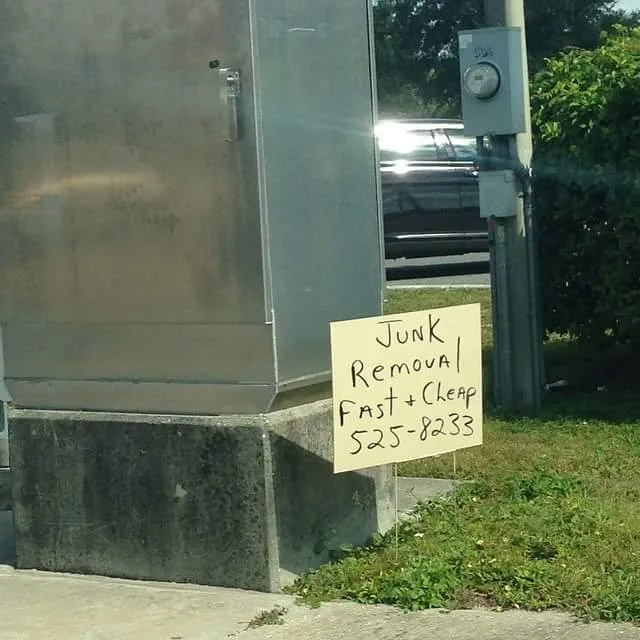 JUNK
REMOVAl
FAST + CHEAP
525-8233